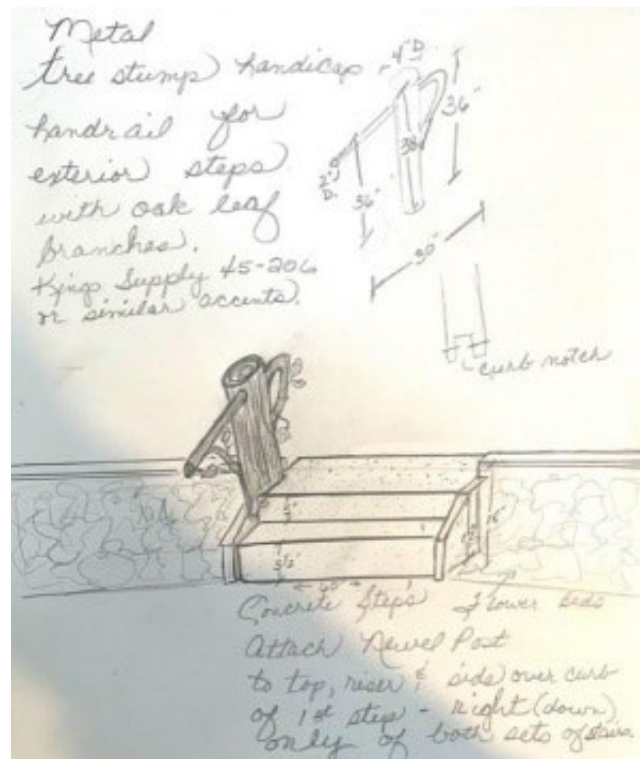 Metal
tree stump handicap
handrail for
exterior steps
with oak leaf
branches.
Kings Supply 45-206
or similar accents.
4" D
36"
38"
2" D.
36"
30"
curb notch
5½"
60"
16"
Concrete Steps Flower beds
Attach Newel Post
to top, riser & side over curb
of 1st step - right (down)
only of both sets of stairs.